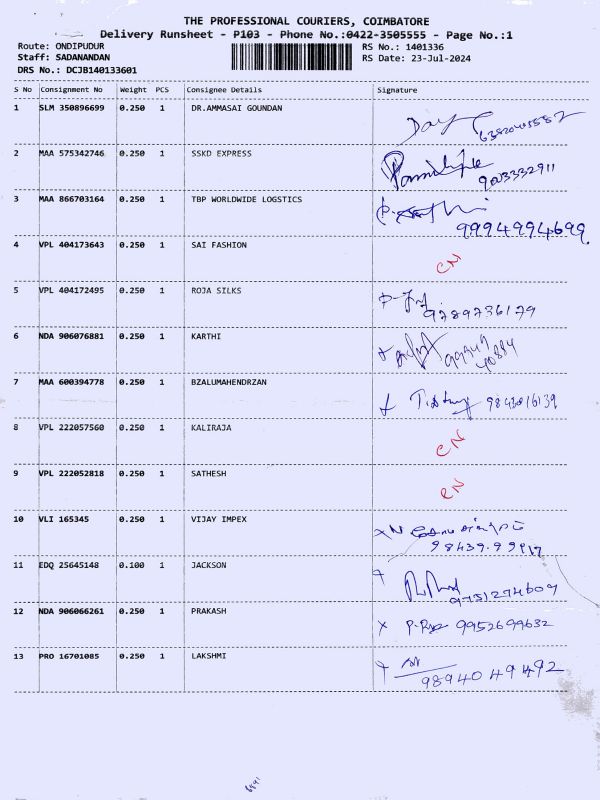 THE PROFESSIONAL COURIERS, COIMBATORE
Delivery Runsheet - P103 - Phone No.:0422-3505555 - Page No.:1
Route: ONDIPUDUR RS No.: 1401336
Staff: SADANANDAN RS Date: 23-Jul-2024
DRS No.: DCJB140133601
S No Consignment No Weight PCS Consignee Details Signature
1 SLM 350896699 0.250 1 DR.AMMASAI GOUNDAN
2 MAA 575342746 0.250 1 SSKD EXPRESS
9003332911
3 MAA 866703164 0.250 1 TBP WORLDWIDE LOGSTICS
9994994699
4 VPL 404173643 0.250 1 SAI FASHION CN
5 VPL 404172495 0.250 1 ROJA SILKS
9789736179
6 NDA 906076881 0.250 1 KARTHI
7 MAA 600394778 0.250 1 BZALUMAHENDRZAN
8 VPL 222057560 0.250 1 KALIRAJA CN
9 VPL 222052818 0.250 1 SATHESH CN
10 VLI 165345 0.250 1 VIJAY IMPEX
11 EDQ 25645148 0.100 1 JACKSON
9751274609
12 NDA 906066261 0.250 1 PRAKASH 9952699632
13 PRO 16701085 0.250 1 LAKSHMI
9894049492